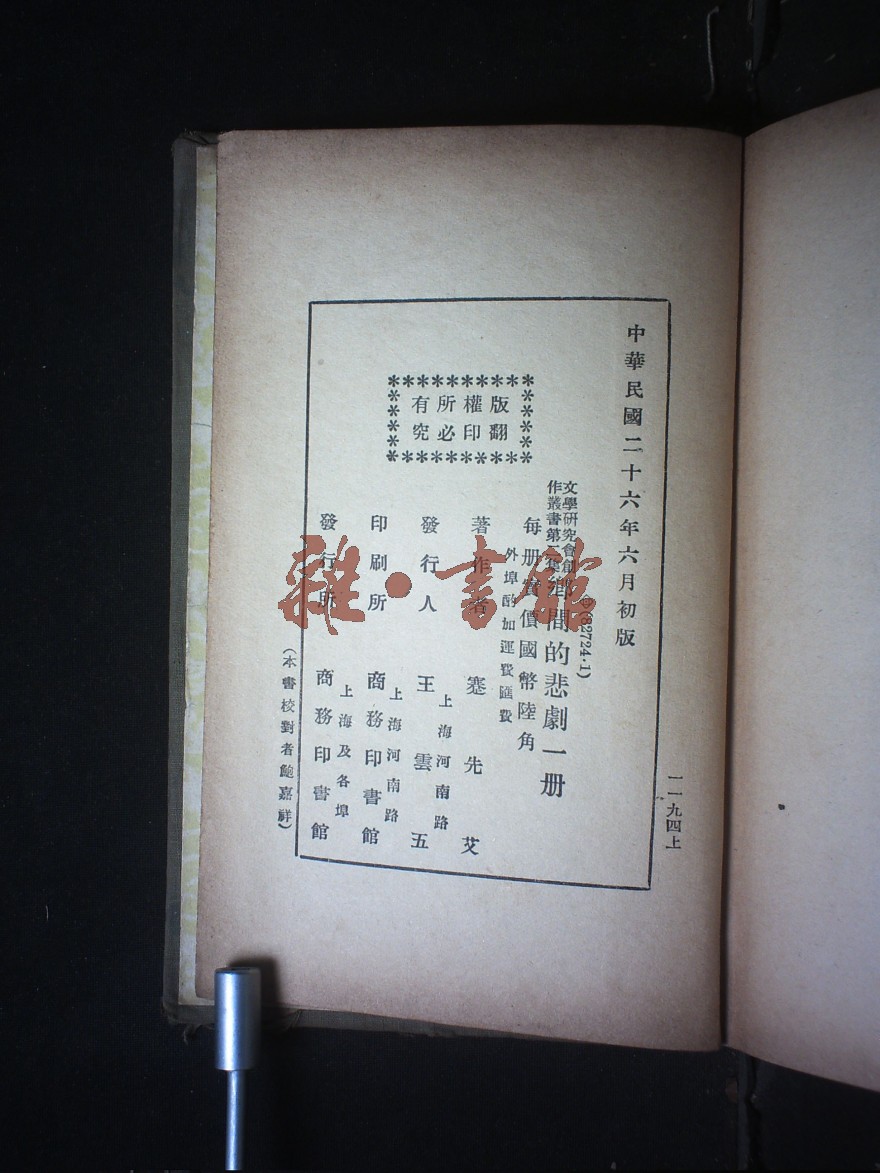 中華民國二十六年六月初版
一一九四上
(82724·1)
文學研究會創
作叢書第二集
鄉間的悲劇一册
每册實價國幣陸角
外埠酌加運費匯費
版權所有
翻印必究
著作者 蹇先艾
發行人 王雲五
上海河南路
印刷所 商務印書館
上海河南路
發行所 商務印書館
上海及各埠
(本書校對者鮑嘉祥)
雜·書館